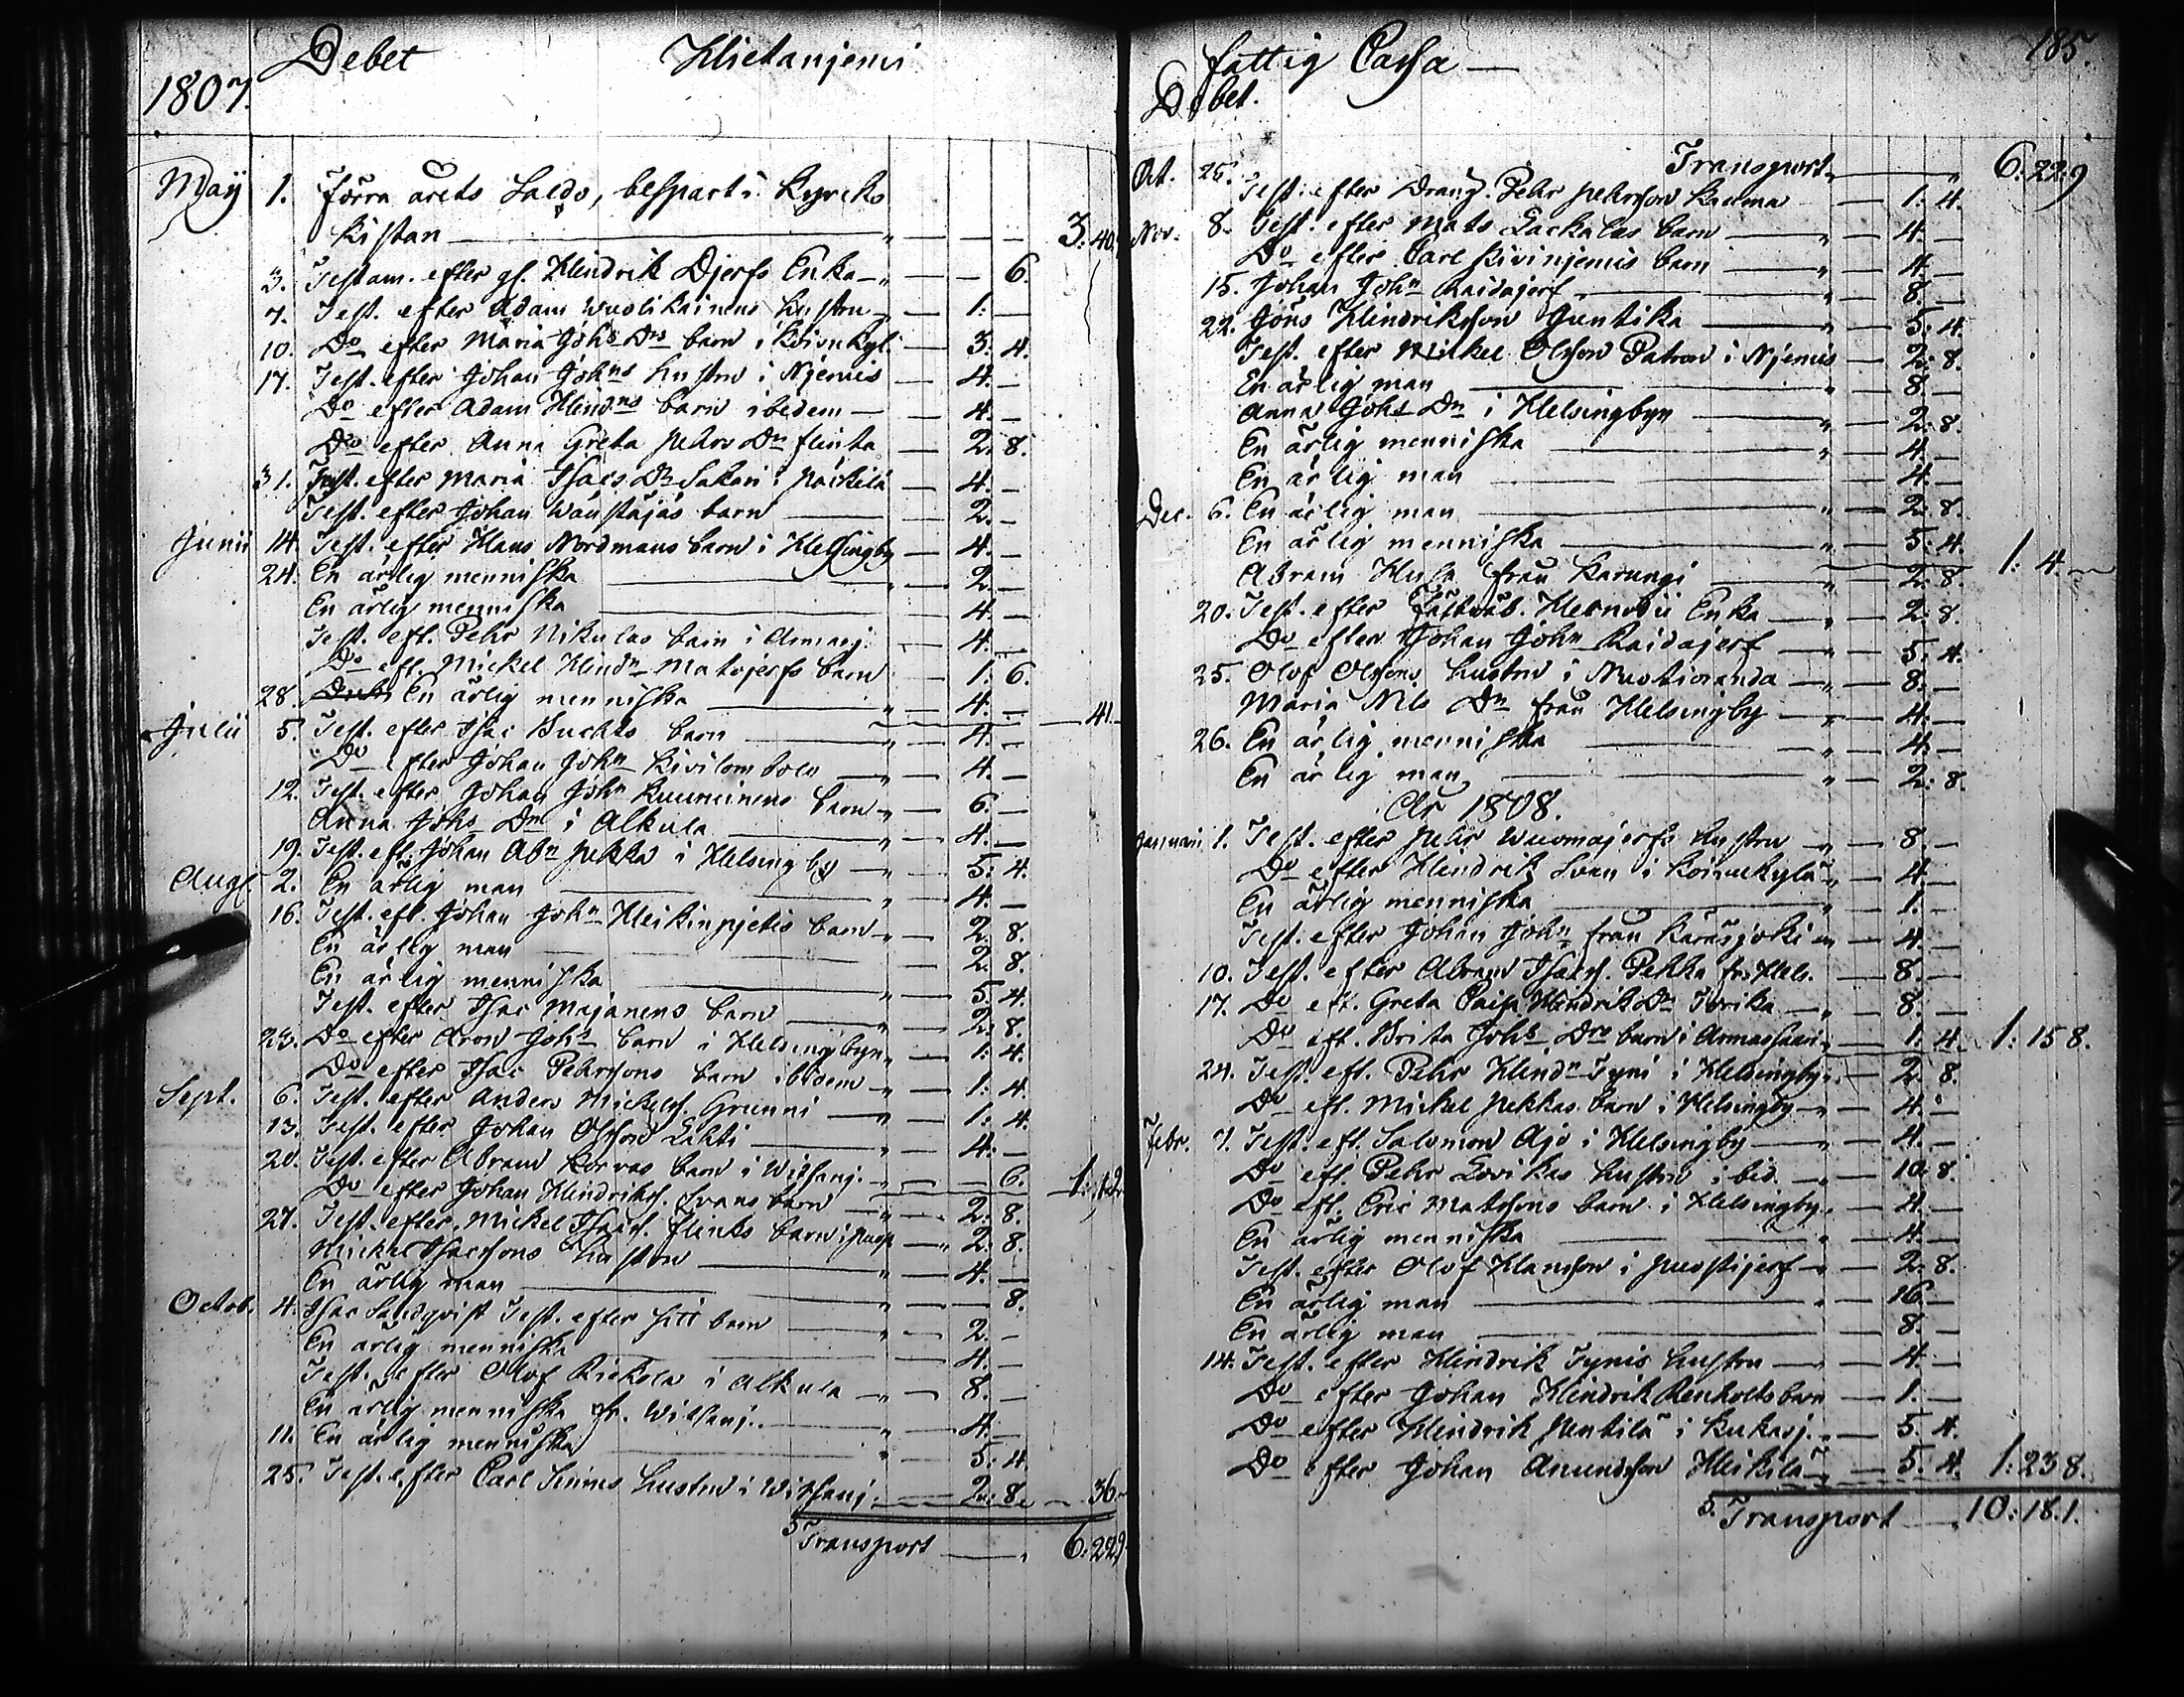 Debet Hietaniemi
1807.
May 1. Förra årets Saldo, bespart i Kyrcko
Kistan — 3: 40.
3. Testam. efter gl. Hindrik Djerfs Enka — 6.
7. Test. efter Adam Wuolikainens hustru — 1: —
10. Do efter Maria Johs Drs barn i Koivukyl. — 3: 4.
17. Test. efter Johan Johns hustru i Njemis — 4. —
Do efter Adam Hindns barn ibidem — 4. —
Do efter Anna Greta Pehrs Dr flinta — 2: 8.
31. Test. efter Maria Isacs Dr Sakari i Päckilä — 4. —
Test. efter Johan Wänstäjäs barn — 2. —
Junii 14. Test. efter Klaus Nordmans barn i Helsingby — 4. —
24. En ärlig menniska — 2. —
En ärlig menniska — 4. —
Test. eft. Pehr Nikulas barn i Armasj. — 4. —
Do eft. Mickel Hindn Matojerfs barn — 1: 6.
28. En ärlig menniska — 4. — 41.
Julii 5. Test. efter Isac Buchts barn — 4. —
Do efter Johan John Kivilombolo — 4. —
12. Test. efter Johan John Kuuninens barn — 6. —
Anna Johs Dr i Alkula — 4. —
19. Test. eft. Johan Abrn Pekka i Helsingby — 5: 4.
Aug. 2. En ärlig man — 4. —
16. Test. eft. Johan John Heikinpjetis barn — 2: 8.
En ärlig man — 2: 8.
En ärlig menniska — 5: 4.
Test. efter Isac Majanens barn — 2: 8.
23. Do efter Aron Johs barn i Helsingbyn — 1: 4.
Do efter Isac Pehrssons barn ibidem — 1: 4.
Sept. 6. Test. efter Anders Mickels. Grunni — 1: 4.
13. Test. efter Johan Olsson Lahti — 4. —
20. Test. efter Abram Korvas barn i Witsanj. — 6.
Do efter Johan Hindrikss. Svans barn — 2: 8. 1: 12
27. Test. efter Mickel Isacss. flinks barn i — 2: 8.
Mickel Isacssons hustru — 4. —
En ärlig man — 8.
Octob. 4. Isac Sandqvist Test. efter sitt barn — 2. —
En ärlig menniska — 4. —
Test. efter Olof Rickola i Alkula — 8. —
En ärlig menniska fr. Witsanj. — 4. —
11. En ärlig menniska — 5: 4.
25. Test. efter Carl Sinius hustru i Witsanj. — 2: 8. — 36.
Transport — 6: 22 9
fattig Cassa — 185.
Debet.
Transport — 6: 22. 9
Oct. 25. Test. efter Dräng. Pehr Pehrsson Kauma — 1: 4.
Nov. 8. Test. efter Mats Lackalas barn — 4. —
Do efter Carl Kivinjemis barn — 4. —
15. Johan John Raidajerf — 8. —
22. Jöns Hindriksson Juntika — 5: 4.
Test. efter Mickel Olsson Patron i Njemis — 2: 8.
En ärlig man — 8. —
Anna Johs Dr i Helsingbyn — 2: 8.
En ärlig menniska — 4. —
En ärlig man — 4. —
Dec. 6. En ärlig man — 2: 8.
En ärlig menniska — 5: 4.
Abram Husa från Karungi — 2: 8. 1: 4. —
20. Test. efter Hernodii Enka — 2: 8.
Do efter Johan John Raidajerf — 5: 4.
25. Olof Olssons hustru i Nuotioranda — 8. —
Maria Nils Dr från Helsingby — 4. —
26. En ärlig menniska — 4. —
En ärlig man — 2: 8.
År 1808.
Januarii 1. Test. efter Pehr Wuomajerfs hustru — 8. —
Do efter Hendrik Svan i Koivukylä — 4. —
En ärlig menniska — 1. —
Test. efter Johan John från Karasjoki — 4. —
10. Test. efter Abram Isacss. Pekka fr. Hels. — 8. —
17. Do eft. Greta Caisa Hindriks Dr Torika — 8. —
Do eft. Brita Johs Drs barn i Armassaari — 1: 4. 1: 15 8.
24. Test. eft. Pehr Hindn Tyni i Helsingby — 2: 8.
Do eft. Mickel Pekkas barn i Helsingby — 4. —
Febr. 7. Test. eft. Salomon Ajo i Helsingby — 4. —
Do eft. Pehr Lovikas hustru ibid. — 10: 8.
Do eft. Eric Matssons barn i Helsingby — 4. —
En ärlig menniska — 4. —
Test. efter Olof Hansson i Puostijerf — 2: 8.
En ärlig man — 16. —
En ärlig man — 8. —
14. Test. efter Hindrik Tynis hustru — 4. —
Do efter Johan Hindrik Renholts barn — 1. —
Do efter Hindrik Pentilä i Kukasj. — 5: 4.
Do efter Johan Amundsson Heikilä — 5: 4. 1: 23 8.
Transport — 10: 18. 1.